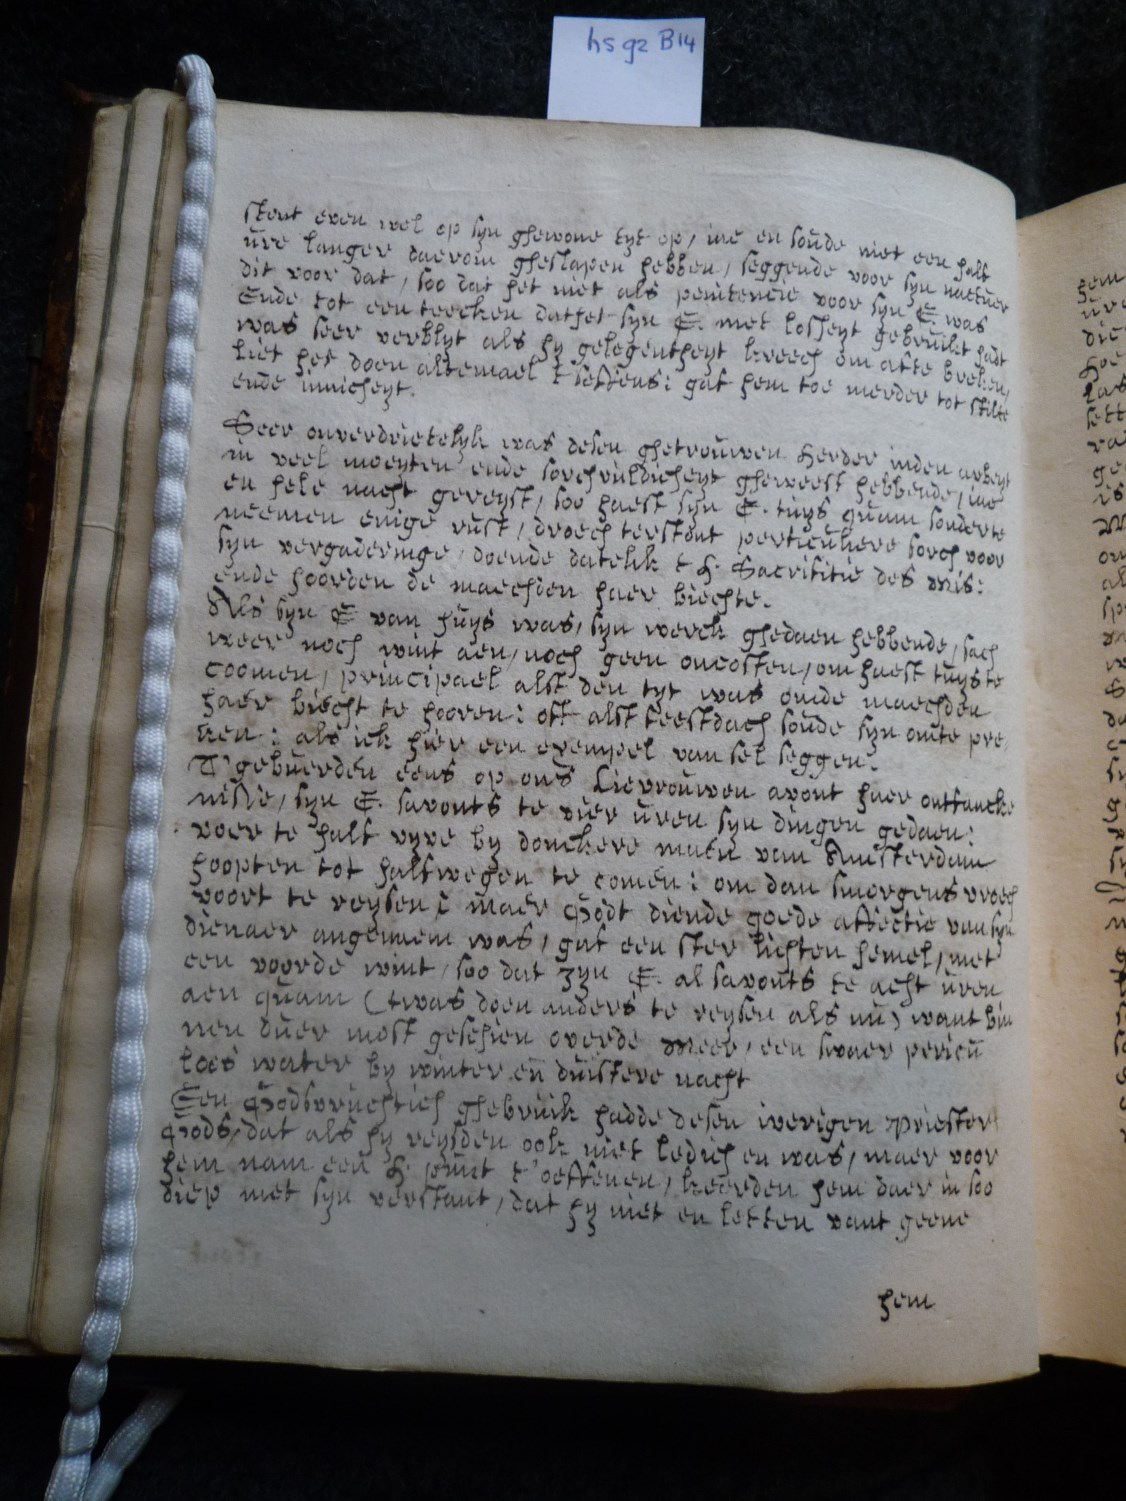 hs 92 B14
stont even wel op syn ghewone tyt op, jae en soude niet een half
ure langer daerom gheslapen hebben, seggende voor syn natuer
dit voor dat, soo dat het niet als penitencie voor syn E. was
Ende tot een teecken dat het syn E. met losheyt gebruikt hadt
was seer verblyt als hy gelegentheyt kreech om afte breken,
liet het doen altemael t'seffens: gaf hem toe meerder tot stilte
ende innicheyt.
Seer onverdrietelyk was desen ghetrouwen Herder inden arbeyt
in veel moeyten ende sorchvuldicheyt gheweest hebbende, jae
en hele nacht gereyst, soo haest syn E. tuys quam sonder te
neemen enige rust, droech terstont perticuliere sorch voor
syn vergaderinge, doende datelik t H. Sacrifitie des Mis:
ende hoorden de maechden haer biechte.
Als syn E van huys was, syn werck ghedaen hebbende, sach
weer noch wint aen, noch geen oncosten, om haest tuys te
coomen, principael alst den tyt was omde maechden
haer biecht te hooren: oft alst feestdach soude syn omte pre
ken: als ick hier een exempel van sel seggen.
T'gebuerden eens op ons Lievrouwen avont haer ontfancke
nisse, syn E. savonts te vier uren syn dingen gedaen:
voer te half vyve by donckere maen van Amsterdam
hoopten tot halfwegen te comen: om dan smorgens vroech
voort te reysen: maer Godt diende goede affectie van syn
dienaer angenaem was, gaf een ster lichten hemel, met
een voorde wint, soo dat zyn E. al savonts te acht uren
aen quam (twas doen anders te reysen als nu) want bin
nen duer most geschien overde Meer, een swaer pericu
loes water by winter en duistere nacht
Een Godsvruchtich ghebruik hadde desen iverigen Priester
Gods, dat als hy reysden ook niet ledich en was, maer voor
hem nam een H. punt t'oeffenen, keerden hem daer in soo
diep met syn verstant, dat hy niet en letten vant geene
hem